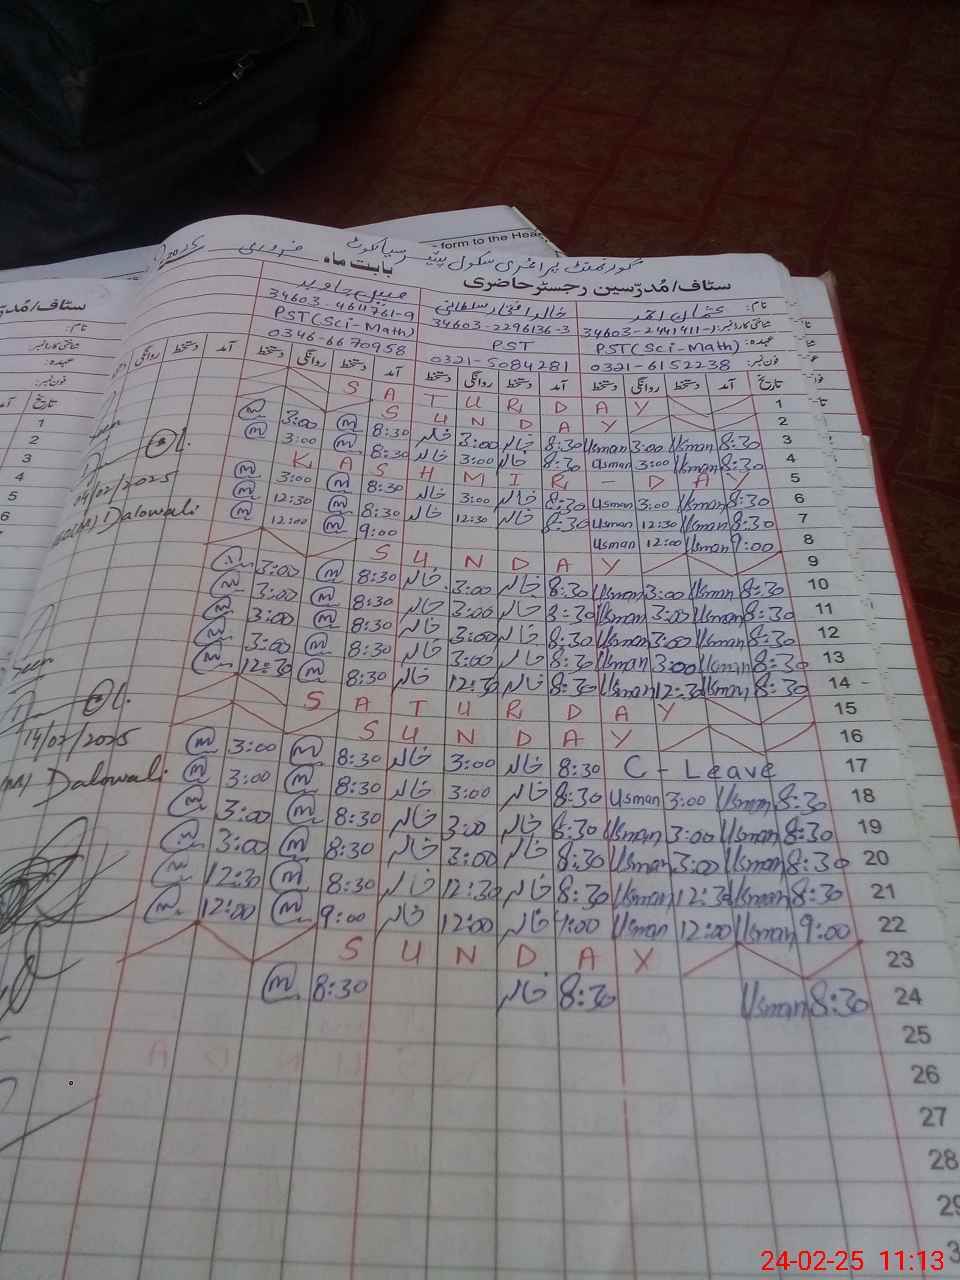 form to the Hea
گورنمنٹ پرائمری سکول سیالکوٹ فروری 2025
سٹاف/مُدرّسین رجسٹر حاضری بابت ماہ
نام: عثمان خالد
34603-2441411-1 34603-2296136-3 34603-4611761-9
عہدہ: PST(Sci-Math) PST PST(Sci-Math)
فون نمبر: 0321-6152238 0321-5084281 0346-6670958
تاریخ آمد دستخط روانگی دستخط آمد دستخط روانگی دستخط آمد دستخط روانگی دستخط آمد دستخط روانگی
1 SATURDAY
2 SUNDAY
3 8:30 Usman 3:00 Usman 8:30 خالد 3:00 خالد 8:30 3:00
4 8:30 Usman 3:00 Usman 8:30 خالد 3:00 خالد 8:30 3:00
5 KASHMIR - DAY
6 8:30 Usman 3:00 Usman 8:30 خالد 3:00 خالد 8:30 3:00
7 8:30 Usman 12:30 Usman 8:30 خالد 12:30 خالد 8:30 12:30
8 9:00 Usman 12:00 Usman 9:00 12:00
9 SUNDAY
10 8:30 Usman 3:00 Usman 8:30 خالد 3:00 خالد 8:30 3:00
11 8:30 Usman 3:00 Usman 8:30 خالد 3:00 خالد 8:30 3:00
12 8:30 Usman 3:00 Usman 8:30 خالد 3:00 خالد 8:30 3:00
13 8:30 Usman 3:00 Usman 8:30 خالد 3:00 خالد 8:30 3:00
14 8:30 Usman 12:30 Usman 8:30 خالد 12:30 خالد 8:30 12:30
15 SATURDAY
16 SUNDAY
17 C - Leave 8:30 خالد 3:00 خالد 8:30 3:00
18 8:30 Usman 3:00 Usman 8:30 خالد 3:00 خالد 8:30 3:00
19 8:30 Usman 3:00 Usman 8:30 خالد 3:00 خالد 8:30 3:00
20 8:30 Usman 3:00 Usman 8:30 خالد 3:00 خالد 8:30 3:00
21 8:30 Usman 12:30 Usman 8:30 خالد 12:30 خالد 8:30 12:30
22 9:00 Usman 12:00 Usman 9:00 خالد 12:00 خالد 9:00 12:00
23 SUNDAY
24 8:30 Usman 8:30 خالد 8:30
25
26
27
28
29
3
04/02/2025
Dalowali
14/02/2025
Dalowali
سٹاف/مُدر
نام:
عہدہ:
فون نمبر:
تاریخ
1
2
3
4
5
6
24-02-25 11:13